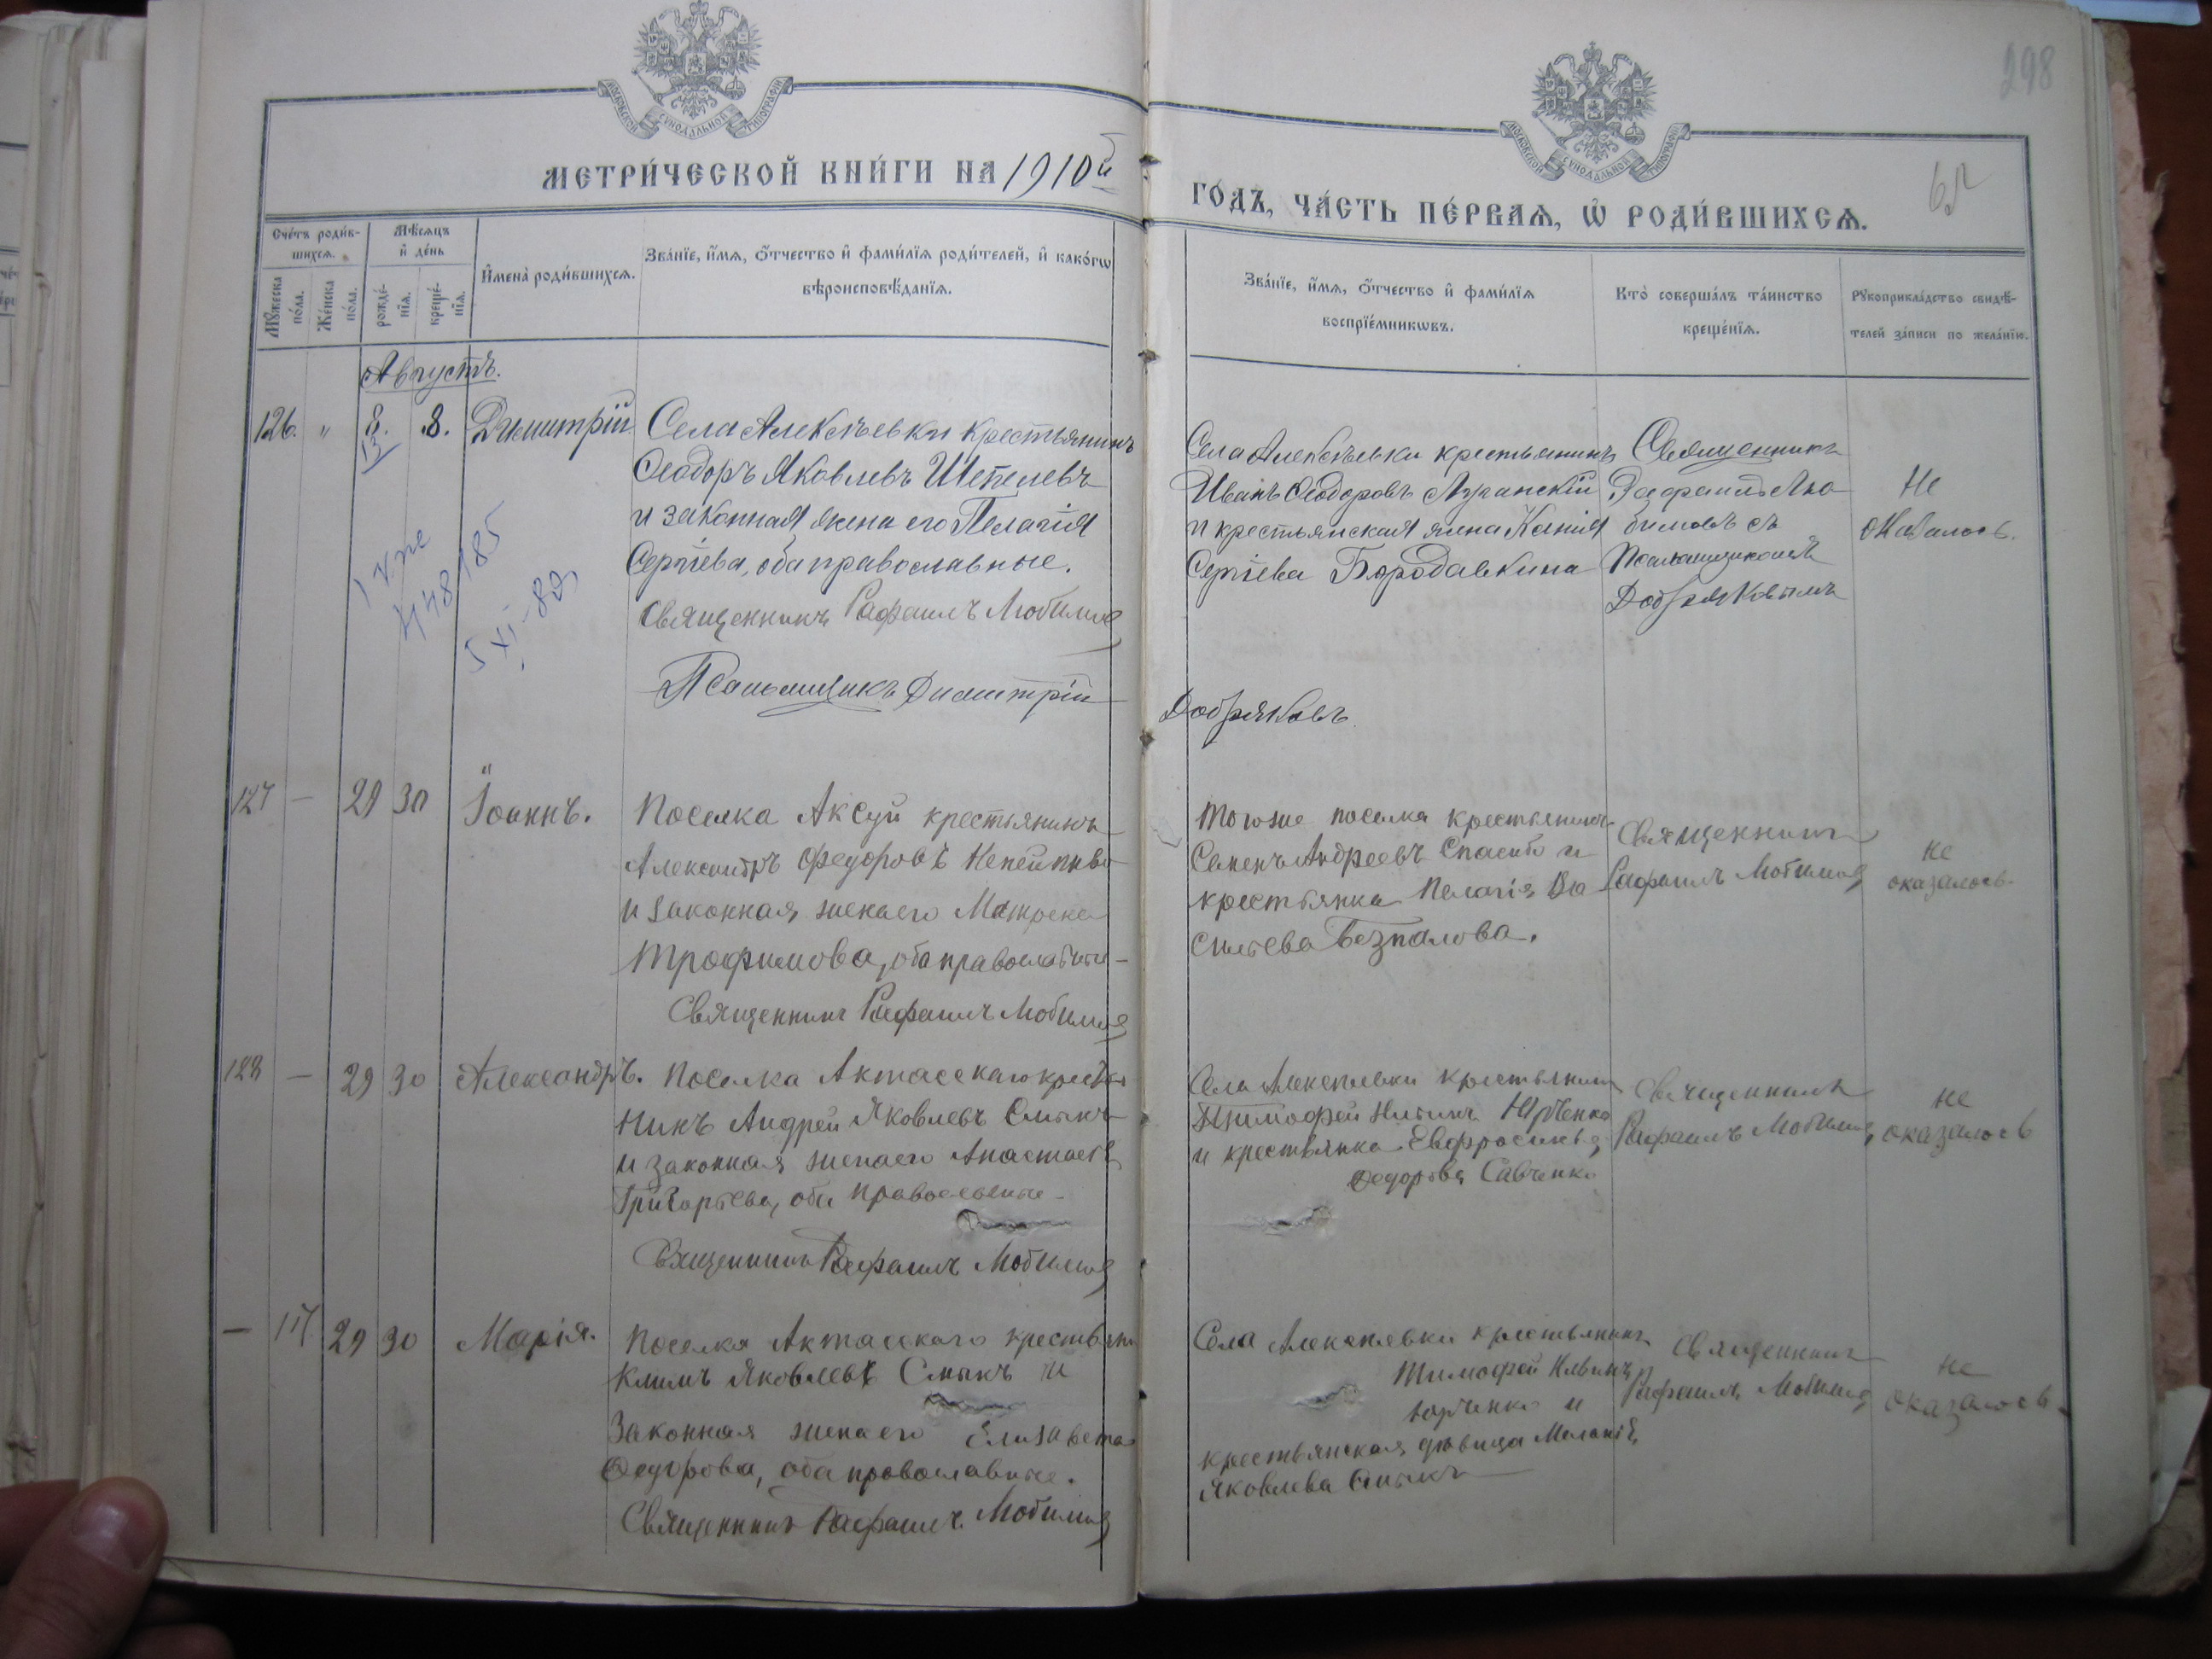 298
МОСКОВСКОЙ СУНОДАЛЬНОЙ ТИПОГРАФІИ
МОСКОВСКОЙ СУНОДАЛЬНОЙ ТИПОГРАФІИ
МЕТРИ́ЧЕСКОЙ КНИ́ГИ НА 1910й
ГО́ДЪ, ЧА́СТЬ ПЕ́РВАѦ, Ѡ҆ РОДИ́ВШИХСѦ.
Сче́тъ роди́в-
шихсѧ.
Мѣ́сѧцъ
и҆ де́нь
И҆мена̀ роди́вшихсѧ.
Зва́нїе, и҆́мѧ, ѻ҆́тчество и҆ фами́лїѧ роди́телей, и҆ како́гѡ
вѣроисповѣ́данїѧ.
Мꙋ́жеска
по́ла.
Же́нска
по́ла.
рожде́-
нїѧ.
креще́-
нїѧ.
Зва́нїе, и҆́мѧ, ѻ҆́тчество и҆ фами́лїѧ
воспрїе́мникѡвъ.
Кто̀ соверша́лъ та́инство
креще́нїѧ.
Рꙋкоприкла́дство свидѣ́-
телей за́писи по жела́нїю.
Августъ.
126. " 8. 8. Димитрій
13
Села Алексѣевки крестьянинъ
Ѳеодоръ Яковлевъ Шепелевъ
и законная жена его Пелагія
Сергіева, оба православные.
Священникъ Рафаилъ Любимов
Псаломщикъ Димитрій
Добряковъ.
Села Алексѣевки крестьянинъ
Иванъ Ѳеодоровъ
и крестьянская жена
Сергіева Бородавкина
Священникъ
Рафаилъ Лю-
бимовъ съ
Псаломщикомъ
Добряковымъ
Не
оказалось.
185
5 XI-89
127 — 29 30 Іоаннъ.
Поселка Аксуй крестьянинъ
Александръ Федоровъ Непейпиво
и законная жена его Матрена
Трофимова, оба православные
Священникъ Рафаилъ Любимов
Того же поселка крестьянинъ
Семенъ Андреевъ Спасибо и
крестьянка Пелагія Ва-
сильева Безпалова.
Священникъ
Рафаилъ Любимов
не
оказалось.
128 — 29 30 Александръ.
Поселка Актасскаго крестья
нинъ Андрей Яковлевъ Смыкъ
и законная жена его Анастасія
Григорьева, оба православные
Священникъ Рафаилъ Любимов
Села Алексѣевки крестьянинъ
Тимофей Ильинъ Юрченко
и крестьянка Евфросинья
Федорова Савченко
Священникъ
Рафаилъ Любимов
не
оказалось
— 117 29 30 Марія.
Поселка Актасскаго крестьянин
Климъ Яковлевъ Смыкъ и
Законная жена его Елизавета
Федорова, оба православные.
Священникъ Рафаилъ Любимов
Села Алексѣевки крестьянинъ
Тимофей Ильинъ
Юрченко и
крестьянская дѣвица Меланія
Яковлева Смыкъ
Священникъ
Рафаилъ Любимов
не
оказалось.